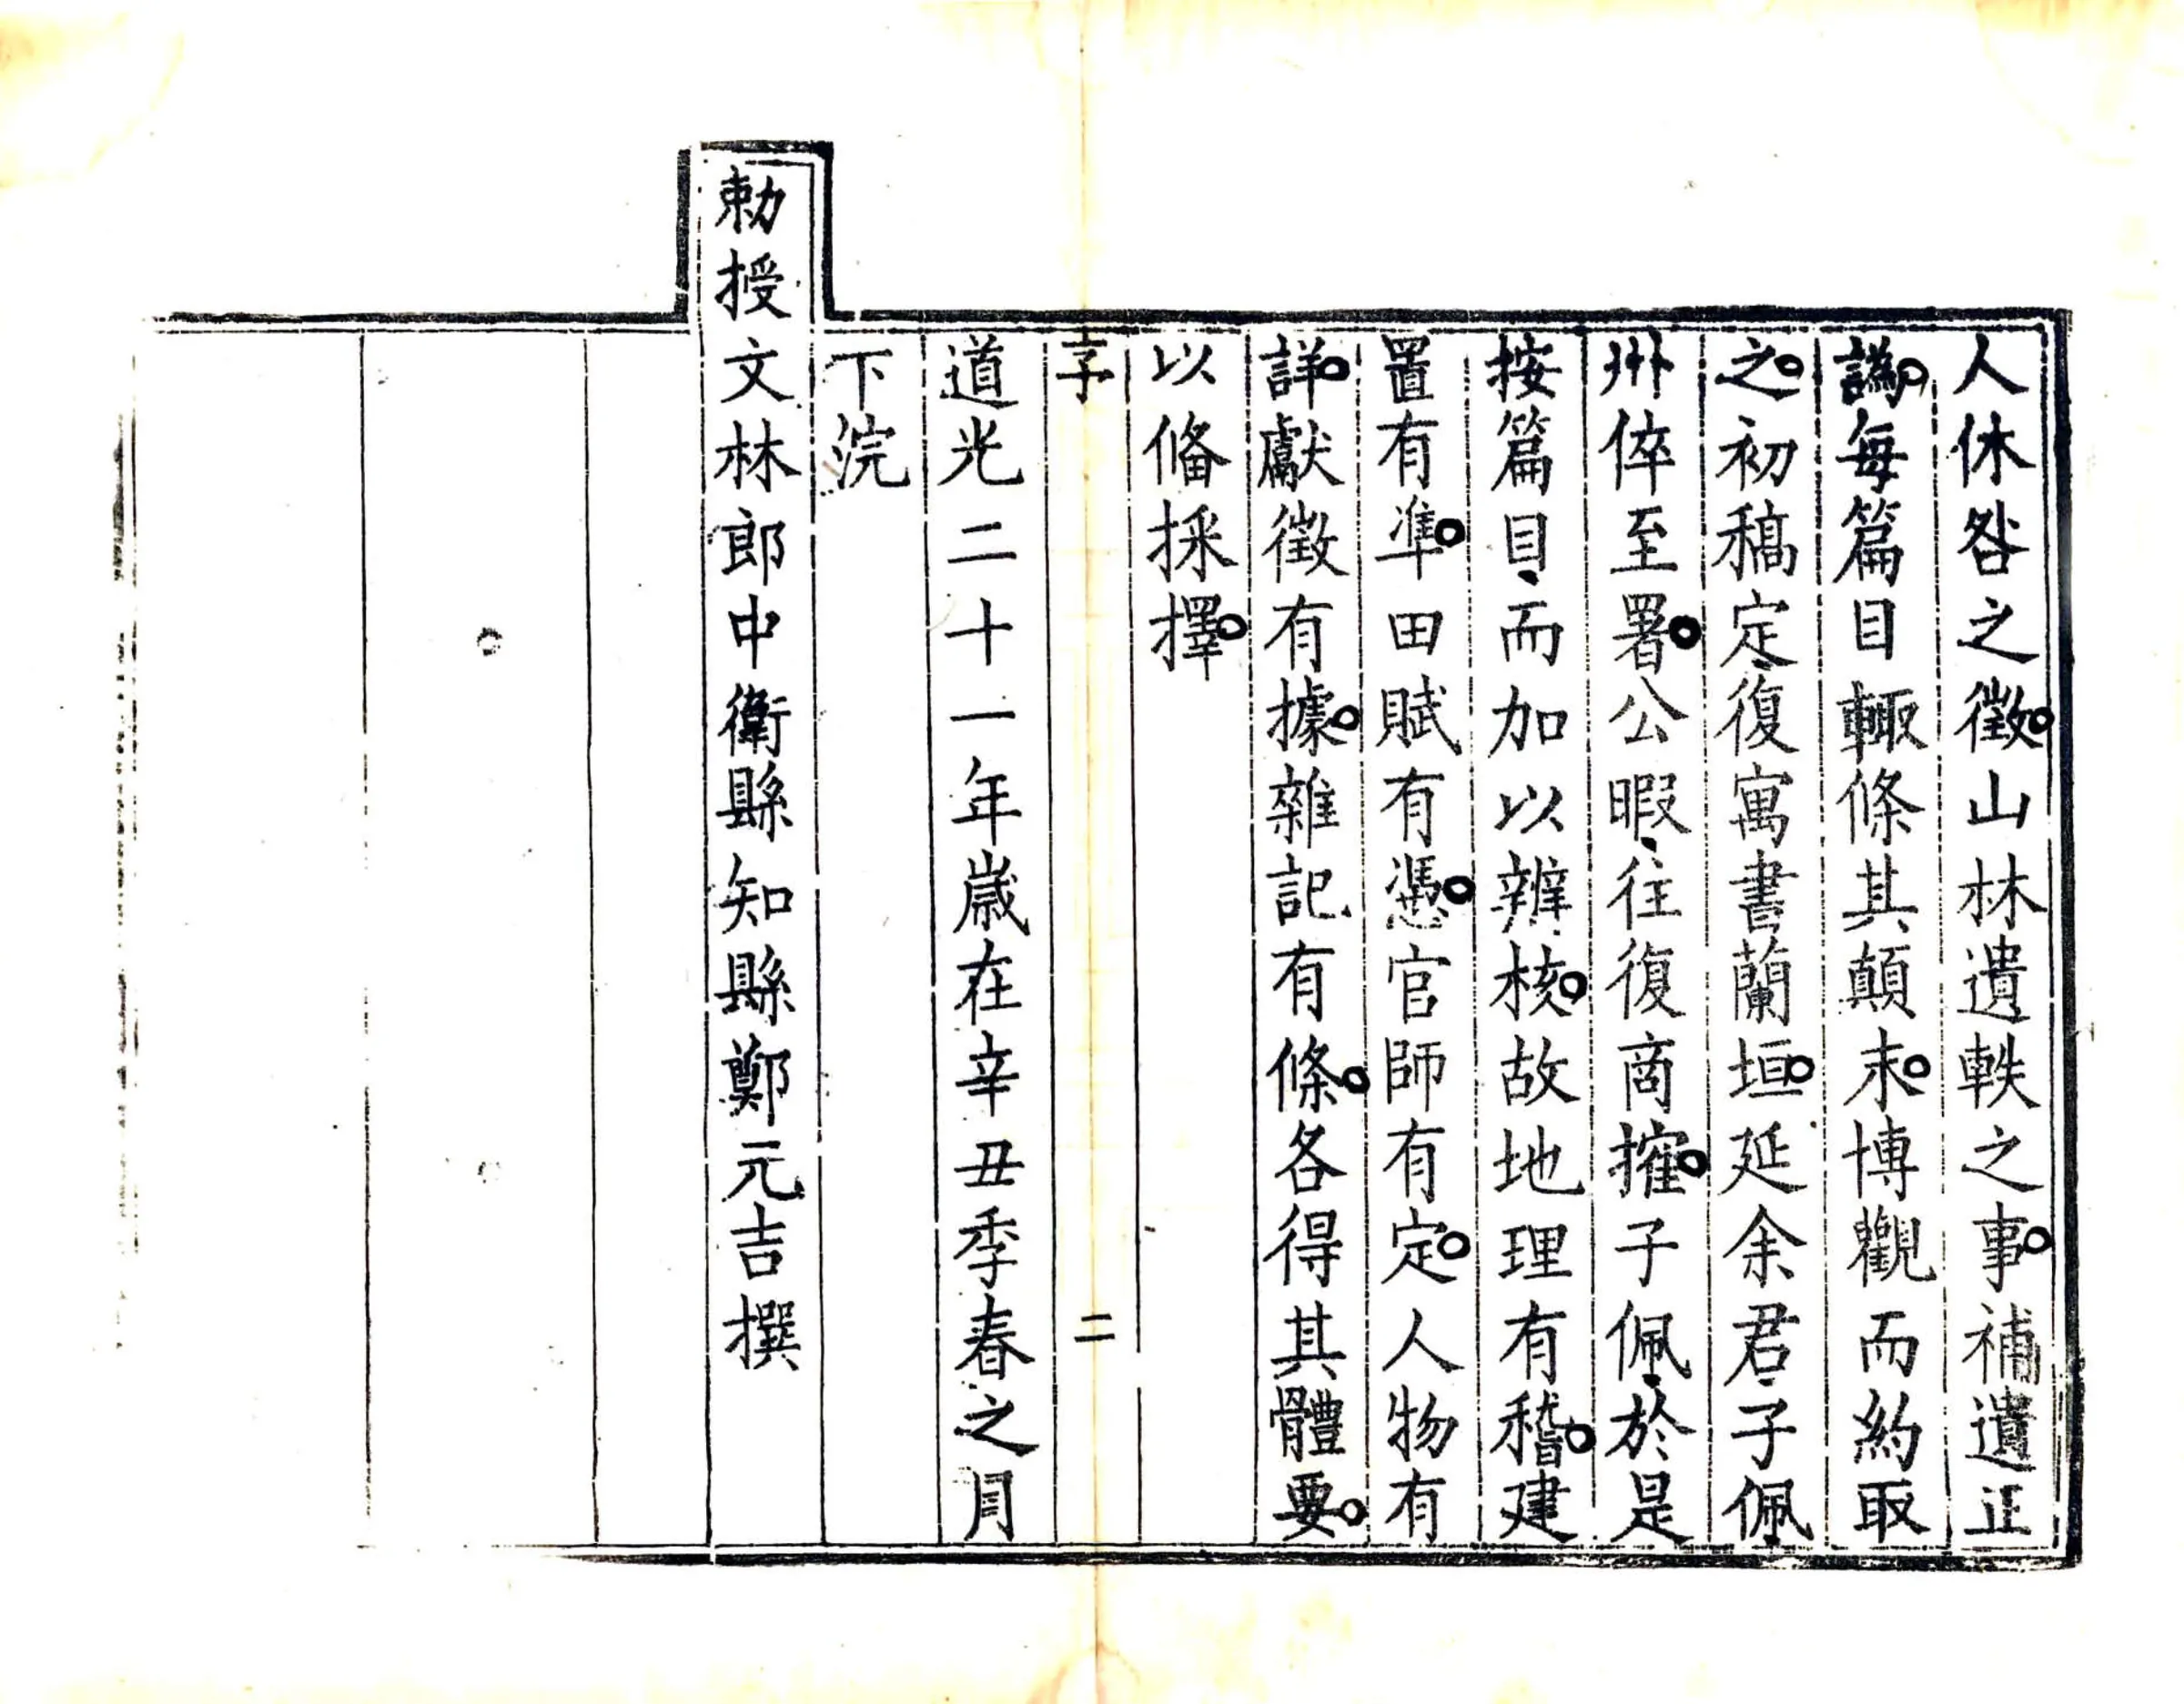 人休咎之徵山林遺軼之事補遺正
譌每篇目輒條其顛末博觀而約取
之初稿定復寓書蘭垣延余君子佩
州倅至署公暇往復商搉子佩於是
按篇目而加以辨核故地理有稽建
置有準田賦有憑官師有定人物有
詳獻徵有據雜記有條各得其體要
以備採擇
二
道光二十一年歲在辛丑季春之月
下浣
勅授文林郎中衛縣知縣鄭元吉撰